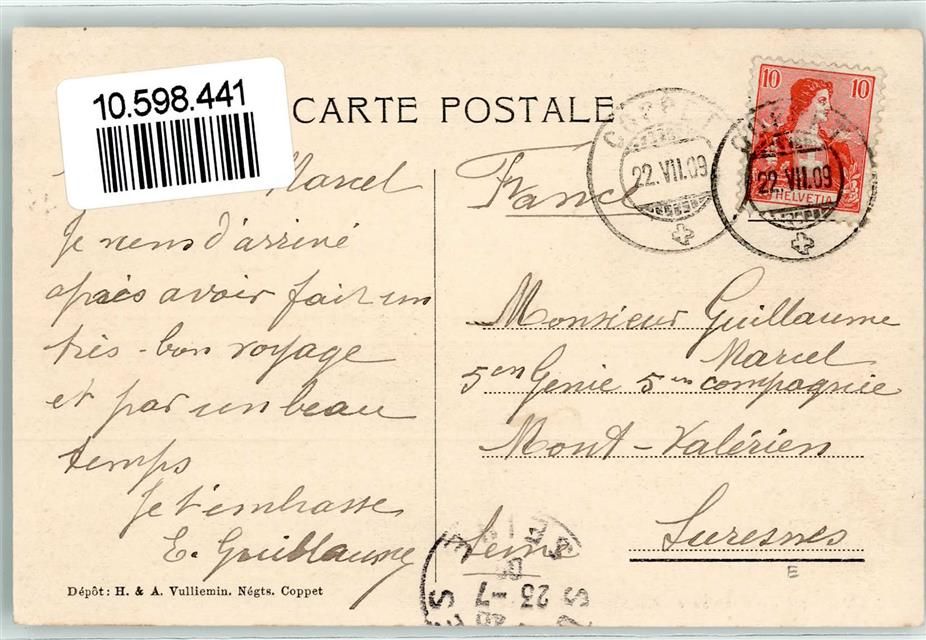 10.598.441
CARTE POSTALE
10 10
HELVETIA
COPPET
22.VII.09
COPPET
22.VII.09
France
Marcel
Je viens d'arrivé
après avoir fait un
très-bon voyage
et par un beau
temps
Je t'embrasse
E. Guillaume
Monsieur Guillaume
Marcel
5en Genie 5en compagnie
Mont-Valérien
Suresnes
Seine
E
23-7
Dépôt: H. & A. Vulliemin. Négts. Coppet